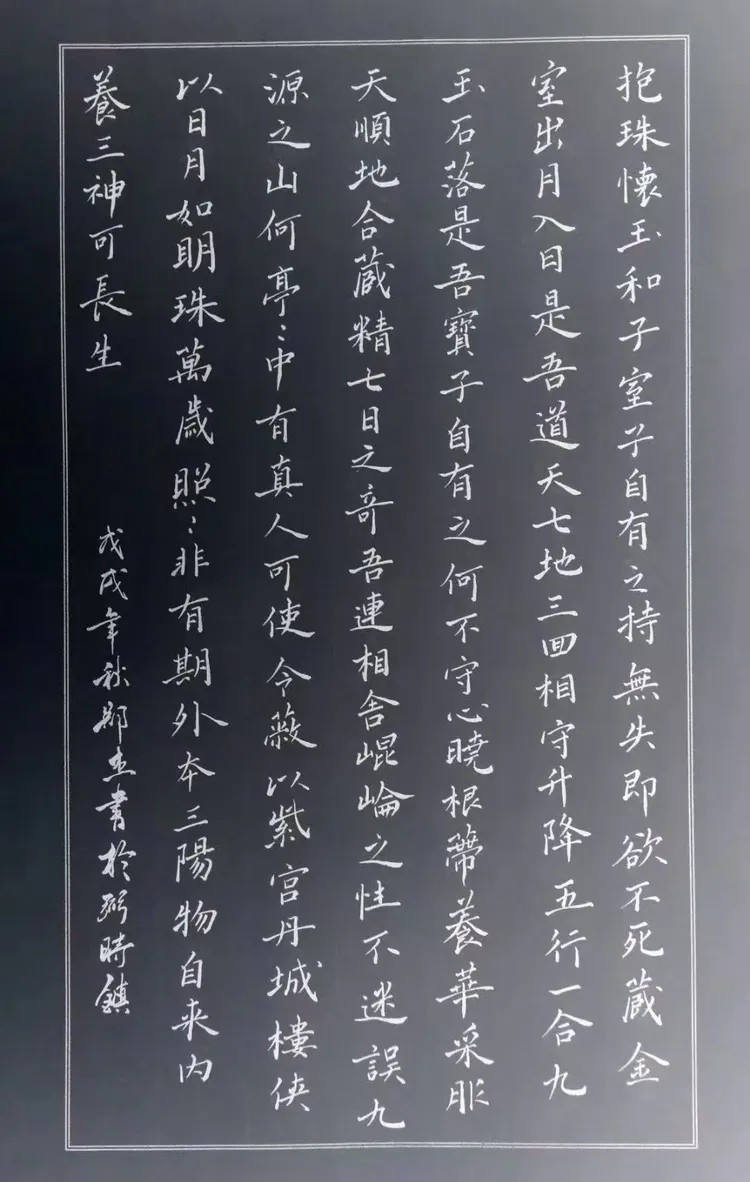 抱珠懷玉和子室子自有之持無失即欲不死藏金
室出月入日是吾道天七地三回相守升降五行一合九
玉石落是吾寶子自有之何不守心曉根蔕養華采服
天順地合藏精七日之奇吾連相舍崐崘之性不迷誤九
源之山何亭〻中有真人可使令蔽以紫宮丹城樓俠
以日月如明珠萬歲照〻非有期外本三陽物自来内
養三神可長生
戊戌年秋鄒杰書於弼時鎮